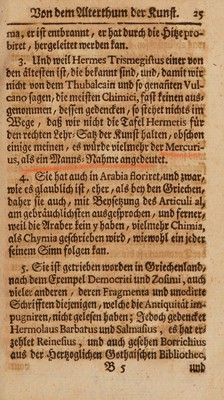 Von dem Alterthum der Kunst. 25
ma, er ist entbrannt, er hat durch die Hitze pro-
biret, hergeleitet werden kan.
3. Und weil Hermes Trismegistus einer von
den ältesten ist, die bekannt sind, und, damit wir
nicht von dem Thubalcain und so genañten Vul-
cano sagen, die meisten Chimici, fast keinen aus-
genommen, dessen gedencken, so stehet nichts im
Wege, daß wir nicht die Tafel Hermetis für
den rechten Lehr-Satz der Kunst halten, obschon
einige meinen, es würde vielmehr der Mercuri-
us, als ein Manns-Nahme angedeutet.
4. Sie hat auch in Arabia floriret, und zwar,
wie es glaublich ist, eher, als bey den Griechen,
daher sie auch, mit Beysetzung des Articuli al,
am gebräuchlichsten ausgesprochen, und ferner,
weil die Araber kein y haben, vielmehr Chimia,
als Chymia geschrieben wird, wiewohl ein jeder
seinem Sinn folgen kan.
5. Sie ist getrieben worden in Griechenland,
nach dem Exempel Democriti und Zosimi, auch
vieler anderen, deren Fragmenta und unedirte
Schrifften diejenigen, welche die Antiquität im-
pugniren, nicht gelesen haben; Jedoch gedencket
Hermolaus Barbatus und Salmasius, es hat er-
zehlet Reinesius, und auch gesehen Borrichius
aus der Hertzoglichen Gothaischen Bibliothec,
B 5 und